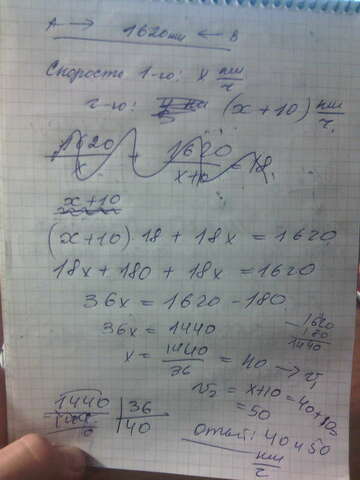 A → 1620 км ← B
Скорость 1-го: x км/ч
2-го: (x+10) км/ч
1620/x + 1620/x+10 = 18
x+10
(x+10)·18 + 18x = 1620
18x + 180 + 18x = 1620
36x = 1620 - 180
36x = 1440
- 1620
180
1440
x = 1440/36 = 40 → v₁
v₂ = x+10 = 40+10
= 50
1440 | 36
40
0
Ответ: 40 и 50
км/ч